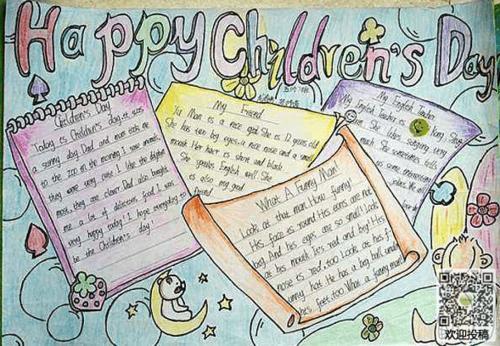 Happy Children's Day
Children's Day
Today is Children's day. It was
a sunny day. Dad and mum took me
to the zoo. In the morning I saw animals
they were very cute. I like the
most, they are clever. Dad also bought
me a lot of delicious food. I was
very happy today! I hope everyday to
be the Children's day!
My Friend
Yu Man is a nice girl. She is 12 years old
She has two big eyes, a nice nose and a small
mouth. Her hair is short and black.
She speaks English well. She
is also my good
friend!
My English Teacher
My English teacher is Yang. She
She likes singing very
much. She sometimes tells
What A Funny Man!
Look at that man. How funny!
His face is round. His ears are not
big. And his eyes are so small. Look
at his mouth. It's red and big! His
nose is red, too. Look at his f
unny hat. He has a big ball under
his feet, too. What a funny man!
欢迎投稿